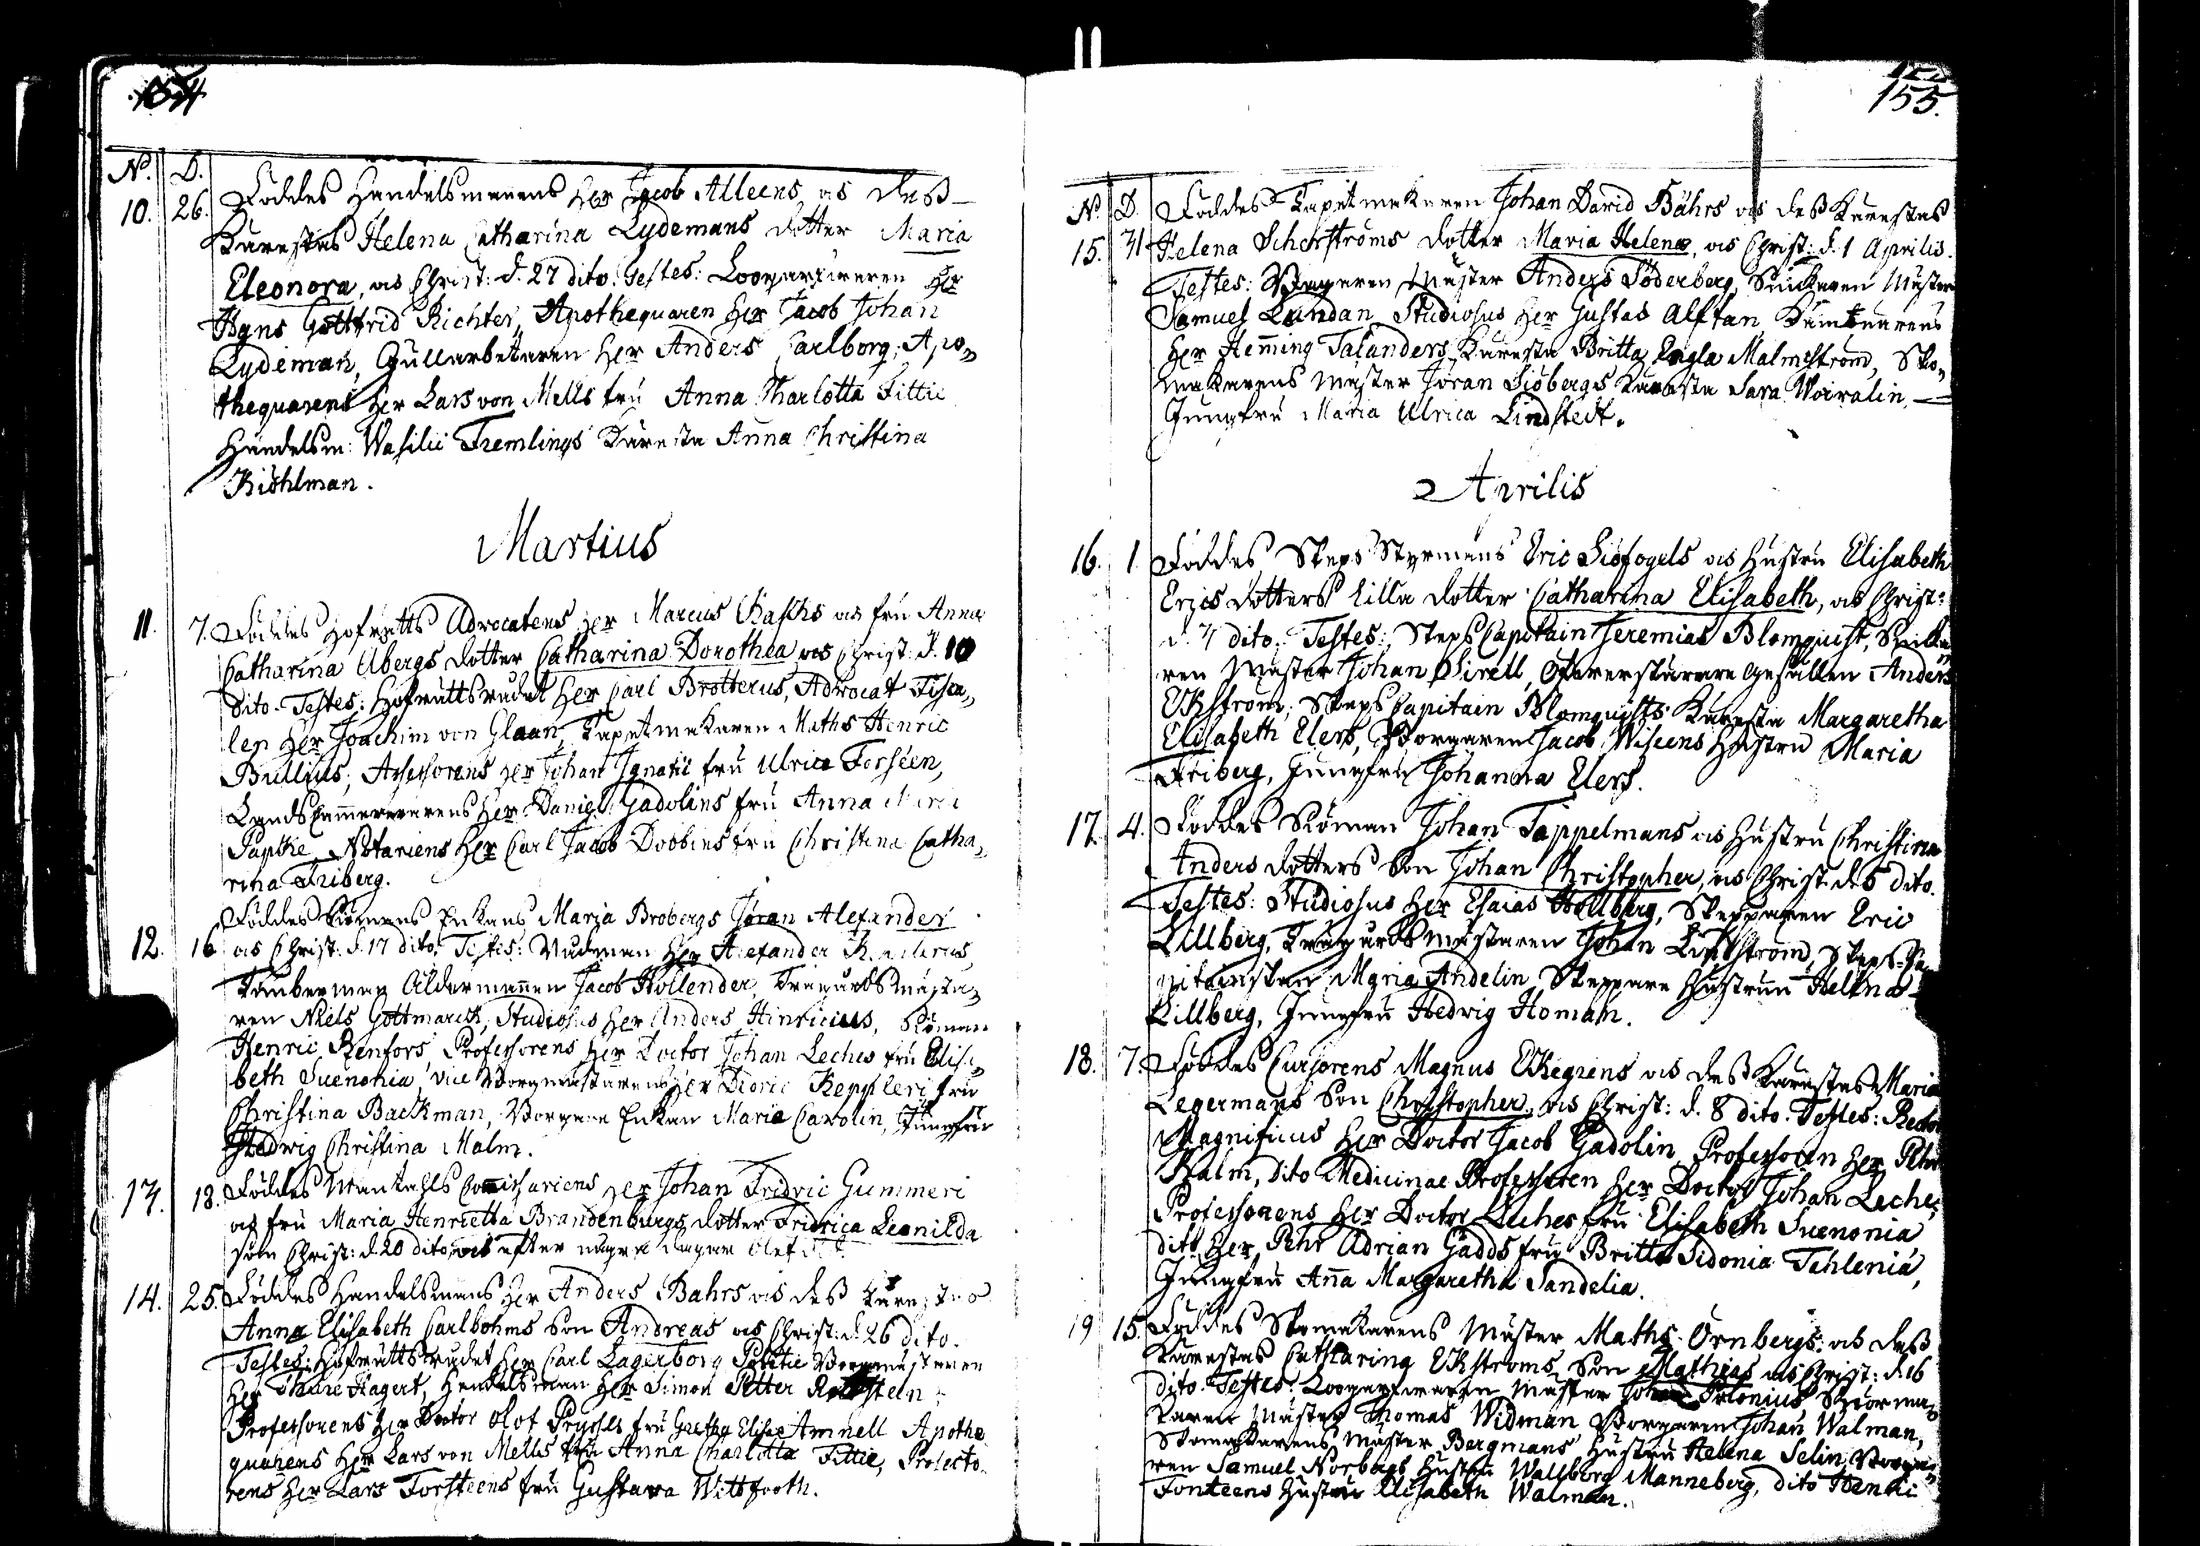 154
N. D.
10. 26. Föddes Handelsmanens Her Jacob Alleens os deß
Kärestas Helena Catharina Lydemans dotter Maria
Eleonora, os Christ: d. 27 dito. Testes: Kopparsl. Her
Hans Gottfrid Richter, Apothequaren Her Jacob Johan
Lydeman, Gullarbetaren Her Anders Carlborg, Apo-
thequarens Her Lars von Mells fru Anna Charlotta Tittie
Handelsm: Wasilii Tremlings Käresta Anna Christina
Kiöhlman.
Martius
11. 7. Föddes Hofrätts Advocatens Her Marcus Chaschs os fru Anna
Catharina Abergs dotter Catharina Dorothea os Christ: d. 10
dito. Testes: Hofrättsrådet Her Carl Brotterus, Advocat Fisca-
len Her Joachim von Glaan, Hapetmakaren Maths Henric
Bullius, Assessorens Her Johan Ignatii fru Ulrica Forséen,
Lands Camererarens Her Daniel Gadolins fru Anna Maria
Paptke, Notariens Her Carl Jacob Dobbins fru Christina Catha-
rina Friberg.
Föddes Enkans Maria Brobergs Jöran Alexander
12. 16 os Christ: d. 17 dito. Testes: Rådman Her Alexander
Timberman Åldermannen Jacob Hollender, Trägårdsmästa-
ren Niels Gottmarck, Studiosus Her Anders Hinricius,
Henric Renfors, Professorens Her Doctor Johan Leches fru Elisa-
beth Suenonia, vice Borgmästarens Her Keppleri fru
Christina Backman, Borgare Enkan Maria Carolin, Jungfru
Hedwig Christina Malm.
13. 18. Föddes Mantahls Comissariens Her Johan Fridric Gummeri
os fru Maria Henrietta Brandenburgs dotter Fridrica Leonilda
som Christ: d. 20 dito, os efter några dagar
14. 25. Föddes Handelsmans Her Anders Bahrs os deß Kärestas
Anna Elisabeth Carlbohms Son Andreas os Christ: d. 26 dito.
Testes: Hofrättsrådet Her Carl Lagerborg, Politie Borgmästaren
Her Thure Hagert, Handelsman Her Simon Petter
Professorens Her Doctor Olof Pryssls fru Gretha Elisa Amnell, Apothe-
quarens Her Lars von Mells fru Anna Charlotta Tittie, Prolecto-
rens Her Lars Forsteens fru Gustava Wittfooth.
155.
N. D. Föddes Hapetmakaren Johan David Bährs os deß Kärestas
15. 31 Helena Scherströms dotter Maria Helena, os Christ: d. 1 Aprilis.
Testes: Wagaren Mäster Anders Söderberg, Snikaren Mäster
Samuel Lundan, Studiosus Her Gustav Alftan, Kämnärens
Her Heñing Talanders Käresta Britta Engla Malmström, Sko-
makarens Mäster Jöran Siöbergs Käresta Sara Woivalin,
Jungfru Maria Ulrica Lindstedt.
Aprilis
16. 1. Föddes Skeps Styrmans Eric Siöfogels os Hustru Elisabeth
Erics dotters lilla dotter Catharina Elisabeth, os Christ:
d. 3 dito. Testes: Skeps Capitain Jeremias Blomquist, Snika-
ren Mäster Johan Sirell, Gesällen Anders
Ekström, Skeps Capitain Blomquists Käresta Margaretha
Elisabeth Elers, Borgaren Jacob Wiseens Hustru Maria
Friberg, Jungfru Johanna Elers.
17. 4. Föddes Siöman Johan Tappelmans os Hustru Christina
Anders dotters Son Johan Christopher, os Christ d. 5 dito.
Testes: Studiosus Her Esaias Hollberg, Skepparen Eric
Lillberg, Trägårdsmästaren Johan Lindström, Skeps Ca-
pitainskan Maria Andelin, Skeppare Hustrun Helena
Lillberg, Jungfru Hedvig Homan.
18. 7. Föddes Cursorens Magnus Ekegrens os deß Kärestas Maria
Legermans Son Christopher, os Christ: d. 8 dito. Testes: Rector
Magnificus Her Doctor Jacob Gadolin, Professoren Her Pehr
Kalm, dito Medicinae Professoren Her Doctor Johan Leche,
Professorens Her Doctor Leches fru Elisabeth Suenonia
dito Her Pehr Adrian Gadds fru Britta Sidonia Tahlenia,
Jungfru Anna Margaretha Sandelia.
19 15. Föddes Skomakarens Mäster Maths Örnbergs os deß
Kärestas Catharina Ekströms Son Mathias os Christ: d. 16
dito. Testes: Mäster Johan Polonius,
Mäster Thomas Widman, Borgaren Johan Walman,
Skomakarens Mäster Bergmans Hustru Helena Selin, Borga-
ren Samuel Norbergs Hustru Wallborg Manneberg, dito Henric
Fonteens Hustru Elisabeth Walman.